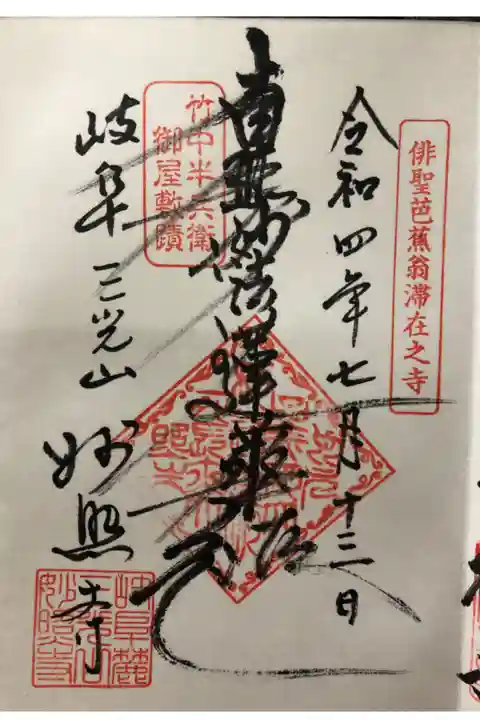 俳聖芭蕉翁滞在之寺
令和四年七月十三日
南無妙法蓮華経
竹中半兵衛
御屋敷蹟
岐阜 三光山 妙照寺
岐阜麓
妙照寺